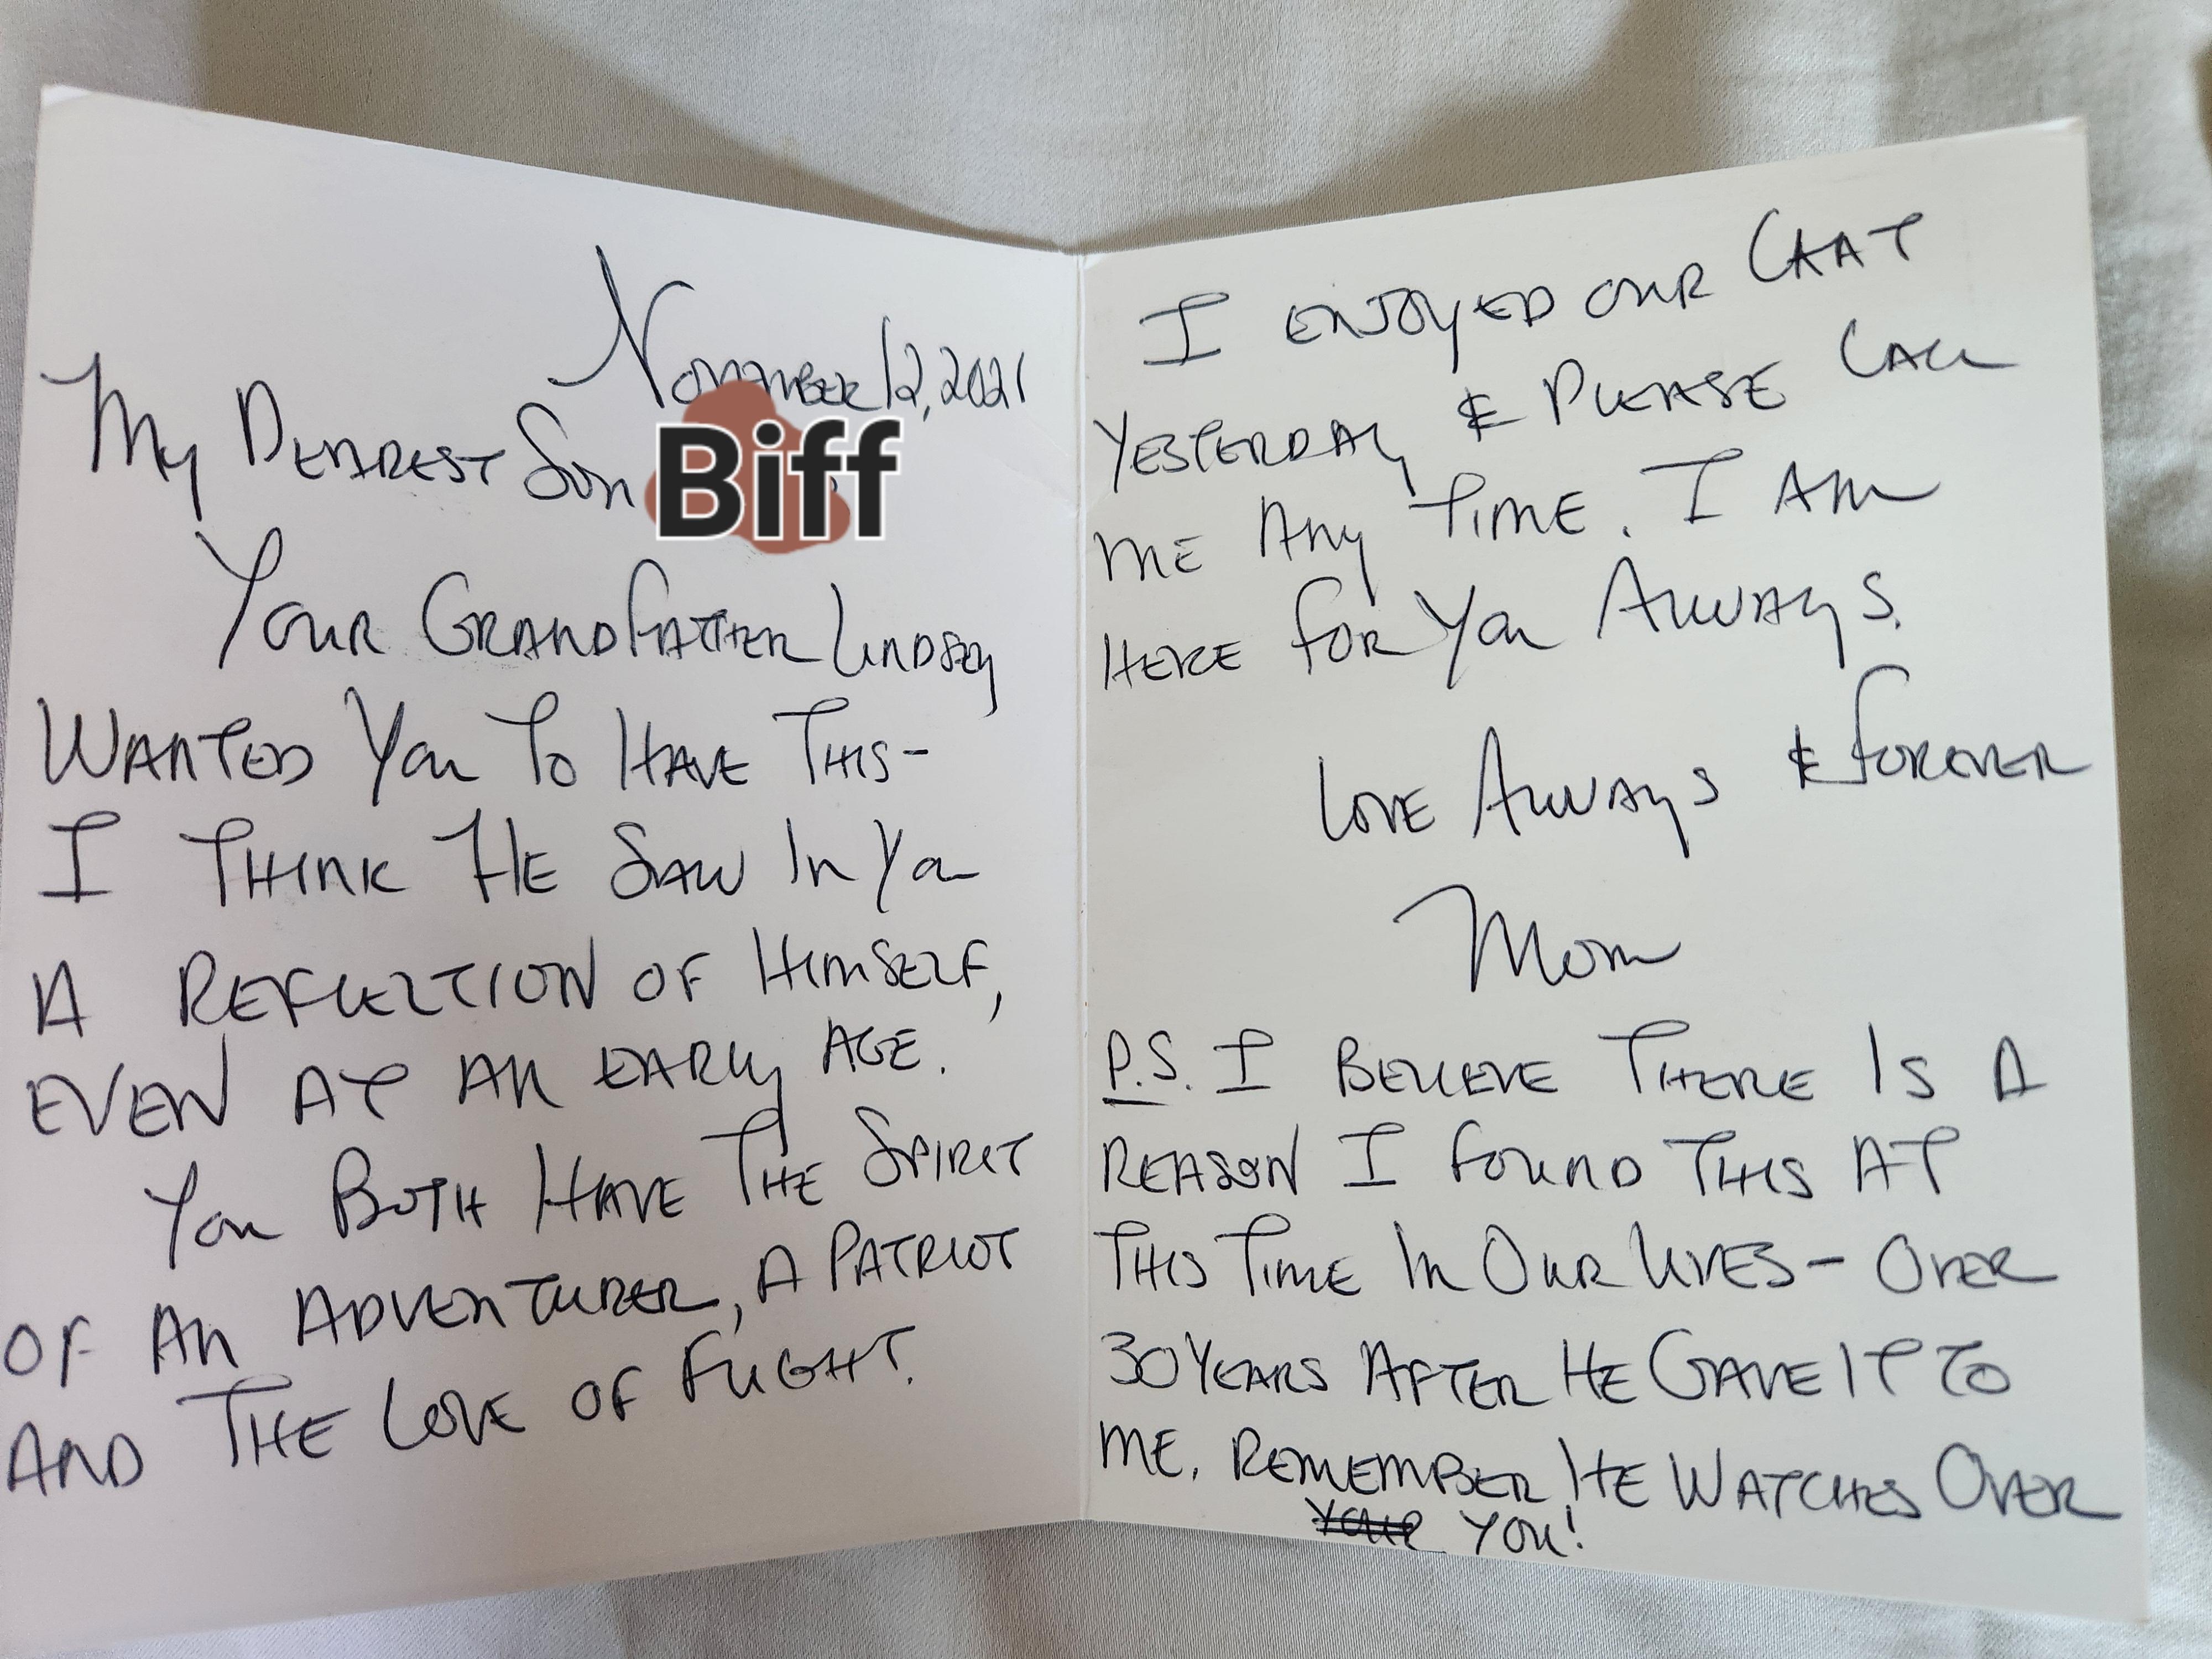 November 12, 2021
My Dearest Son Biff
Your Grandfather Lindsey
Wanted You To Have This-
I Think He Saw In You
A Reflection of Himself,
Even at an early age.
You Both Have The Spirit
of an Adventurer, A Patriot
and The Love of Flight.
I enjoyed our Chat
yesterday & Please Call
me Any Time. I Am
here for You Always.
Love Always & Forever
Mom
P.S. I Believe There Is A
reason I found This At
This Time In Our Lives- Over
30 Years After He Gave It To
me. Remember He Watches Over
You!